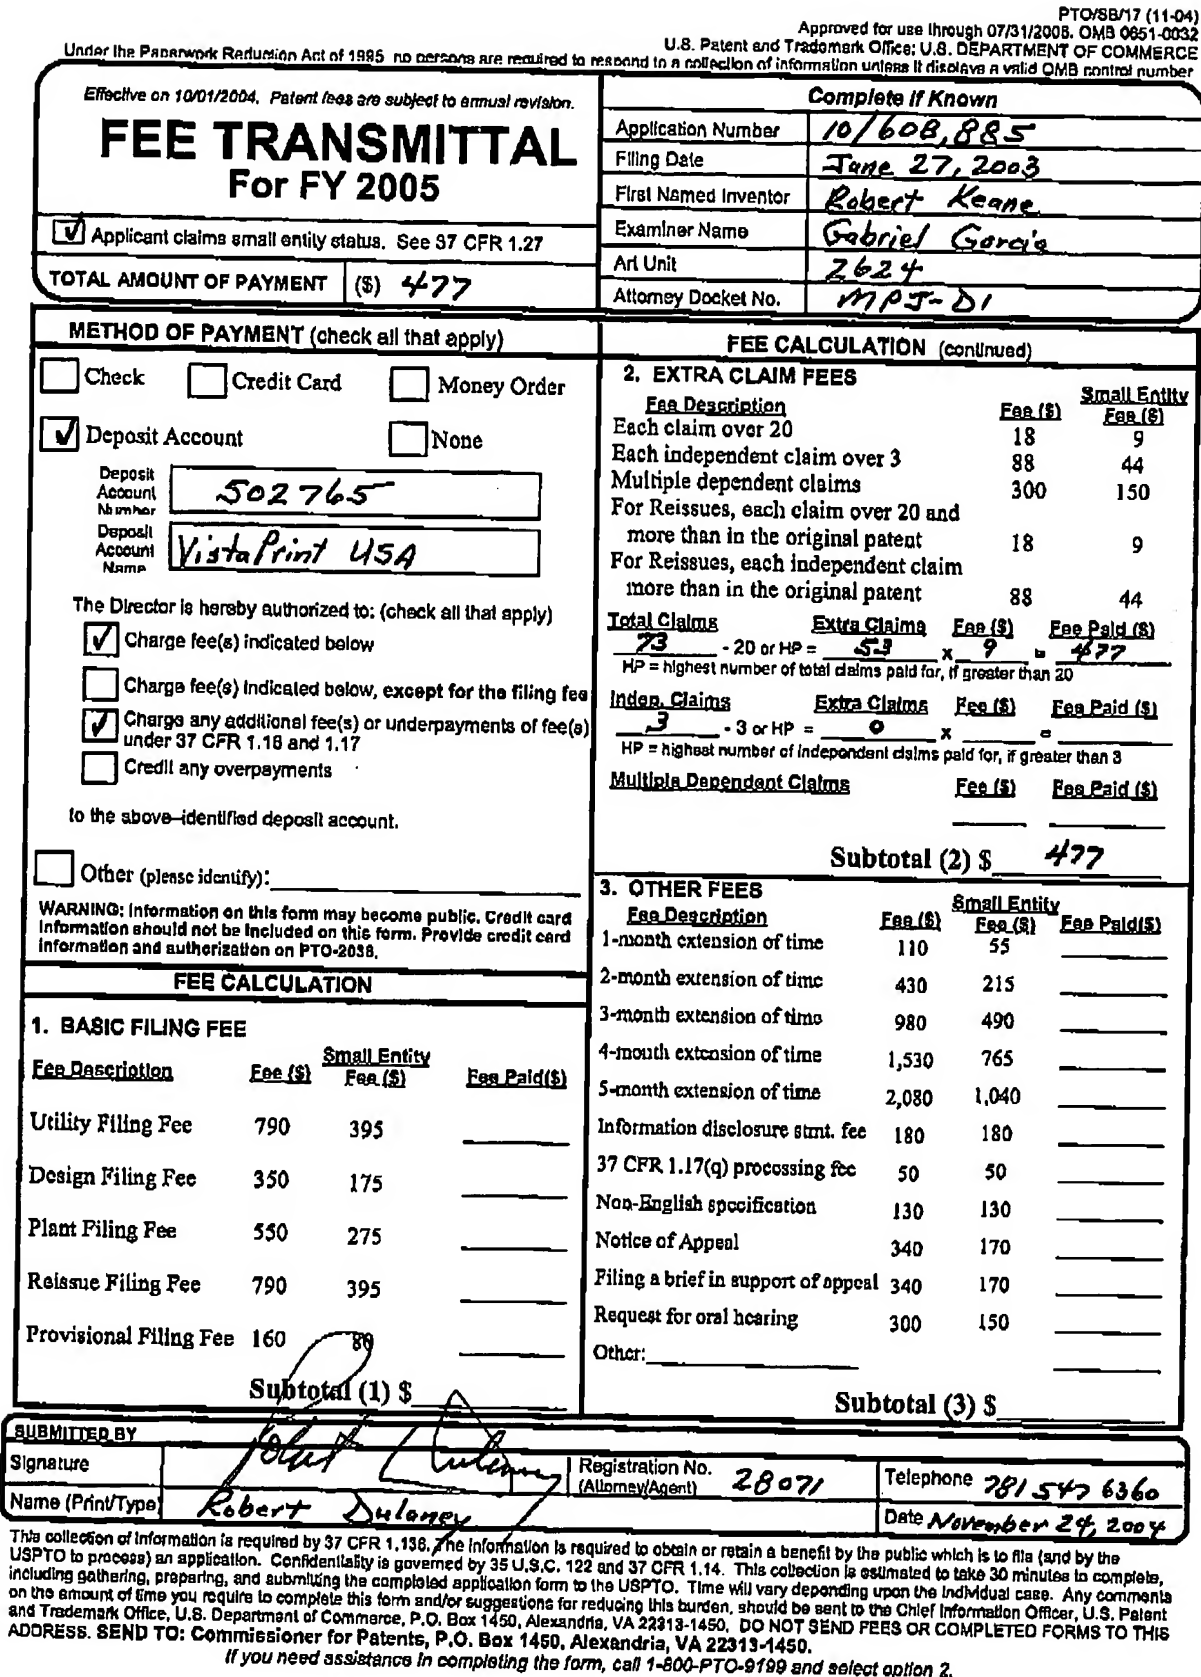 PTO/SB/17 (11-04)
Approved for use through 07/31/2006. OMB 0651-0032
U.S. Patent and Trademark Office; U.S. DEPARTMENT OF COMMERCE
Under the Paperwork Reduction Act of 1995 no persons are required to respond to a collection of information unless it displays a valid OMB control number
Effective on 10/01/2004. Patent fees are subject to annual revision.
FEE TRANSMITTAL
For FY 2005
☑ Applicant claims small entity status. See 37 CFR 1.27
TOTAL AMOUNT OF PAYMENT ($) 477
Complete if Known
Application Number 10/608,885
Filing Date June 27, 2003
First Named Inventor Robert Keane
Examiner Name Gabriel Garcia
Art Unit 2624
Attorney Docket No. MPJ-D1
METHOD OF PAYMENT (check all that apply)
Check Credit Card Money Order
☑ Deposit Account None
Deposit Account Number 502765
Deposit Account Name VistaPrint USA
The Director is hereby authorized to: (check all that apply)
☑ Charge fee(s) indicated below
Charge fee(s) indicated below, except for the filing fee
☑ Charge any additional fee(s) or underpayments of fee(s)
under 37 CFR 1.16 and 1.17
Credit any overpayments
to the above-identified deposit account.
Other (please identify):
WARNING: Information on this form may become public. Credit card
information should not be included on this form. Provide credit card
information and authorization on PTO-2038.
FEE CALCULATION
1. BASIC FILING FEE
Small Entity
Fee Description Fee ($) Fee ($) Fee Paid($)
Utility Filing Fee 790 395
Design Filing Fee 350 175
Plant Filing Fee 550 275
Reissue Filing Fee 790 395
Provisional Filing Fee 160 80
Subtotal (1) $
FEE CALCULATION (continued)
2. EXTRA CLAIM FEES
Small Entity
Fee Description Fee ($) Fee ($)
Each claim over 20 18 9
Each independent claim over 3 88 44
Multiple dependent claims 300 150
For Reissues, each claim over 20 and
more than in the original patent 18 9
For Reissues, each independent claim
more than in the original patent 88 44
Total Claims Extra Claims Fee ($) Fee Paid ($)
73 - 20 or HP = 53 x 9 = 477
HP = highest number of total claims paid for, if greater than 20
Indep. Claims Extra Claims Fee ($) Fee Paid ($)
3 - 3 or HP = 0 x =
HP = highest number of independent claims paid for, if greater than 3
Multiple Dependent Claims Fee ($) Fee Paid ($)
Subtotal (2) $ 477
3. OTHER FEES
Small Entity
Fee Description Fee ($) Fee ($) Fee Paid($)
1-month extension of time 110 55
2-month extension of time 430 215
3-month extension of time 980 490
4-month extension of time 1,530 765
5-month extension of time 2,080 1,040
Information disclosure stmt. fee 180 180
37 CFR 1.17(q) processing fee 50 50
Non-English specification 130 130
Notice of Appeal 340 170
Filing a brief in support of appeal 340 170
Request for oral hearing 300 150
Other:
Subtotal (3) $
SUBMITTED BY
Signature Robert Dulaney
Registration No. (Attorney/Agent) 28071
Telephone 781 547 6360
Name (Print/Type) Robert Dulaney
Date November 24, 2004
This collection of information is required by 37 CFR 1.136. The information is required to obtain or retain a benefit by the public which is to file (and by the
USPTO to process) an application. Confidentiality is governed by 35 U.S.C. 122 and 37 CFR 1.14. This collection is estimated to take 30 minutes to complete,
including gathering, preparing, and submitting the completed application form to the USPTO. Time will vary depending upon the individual case. Any comments
on the amount of time you require to complete this form and/or suggestions for reducing this burden, should be sent to the Chief Information Officer, U.S. Patent
and Trademark Office, U.S. Department of Commerce, P.O. Box 1450, Alexandria, VA 22313-1450. DO NOT SEND FEES OR COMPLETED FORMS TO THIS
ADDRESS. SEND TO: Commissioner for Patents, P.O. Box 1450, Alexandria, VA 22313-1450.
If you need assistance in completing the form, call 1-800-PTO-9199 and select option 2.